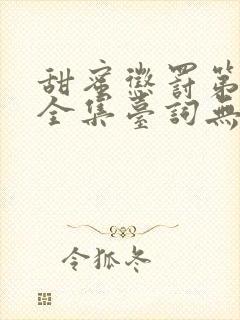 甜蜜懲罰第
全集臺詞無
令狐冬